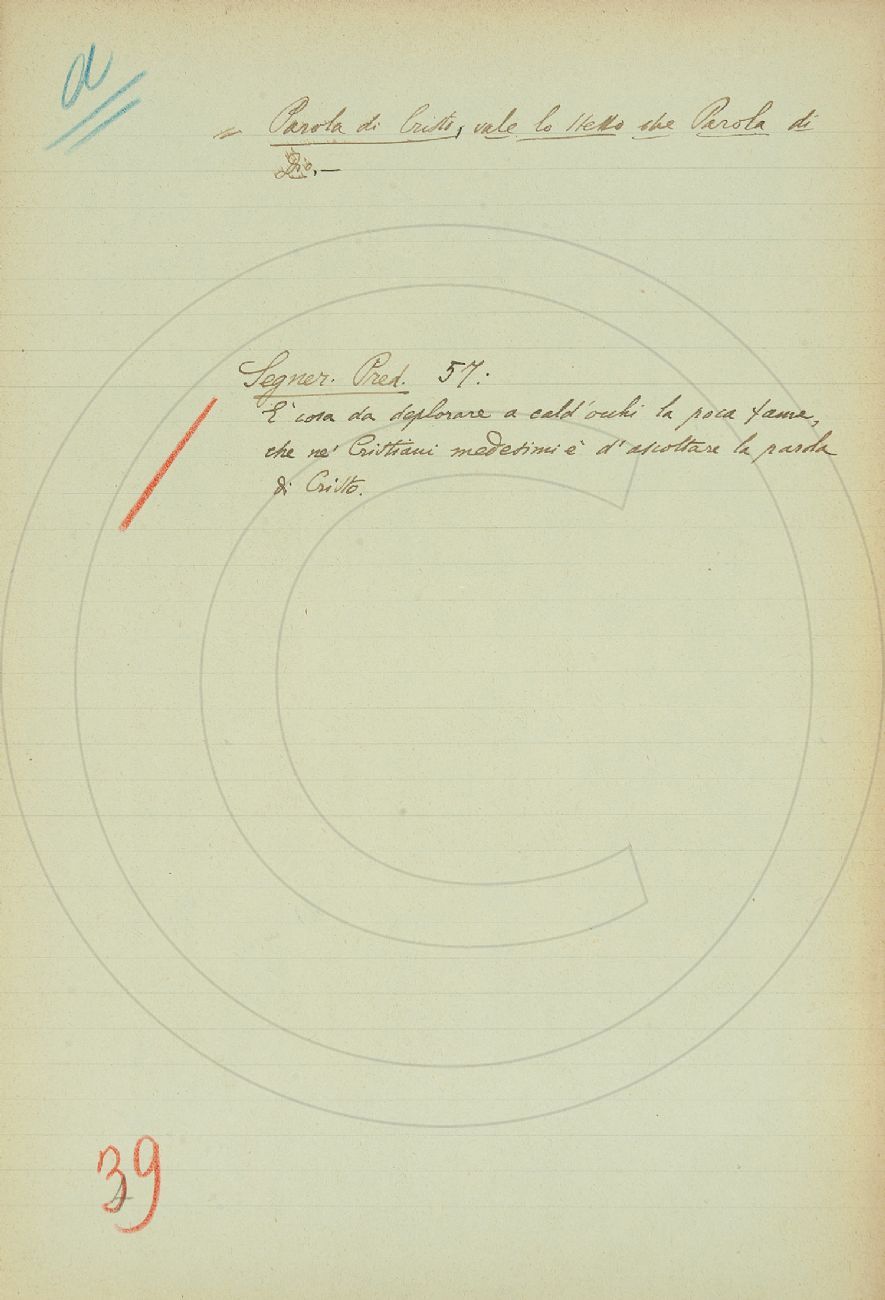 a
= Parola di Cristo, vale lo stesso che Parola di
Dio. —
Segner. Pred. 57:
E' cosa da deplorare a cald'occhi la poca fame,
che ne' Cristiani medesimi è d'ascoltare la parola
di Cristo.
39